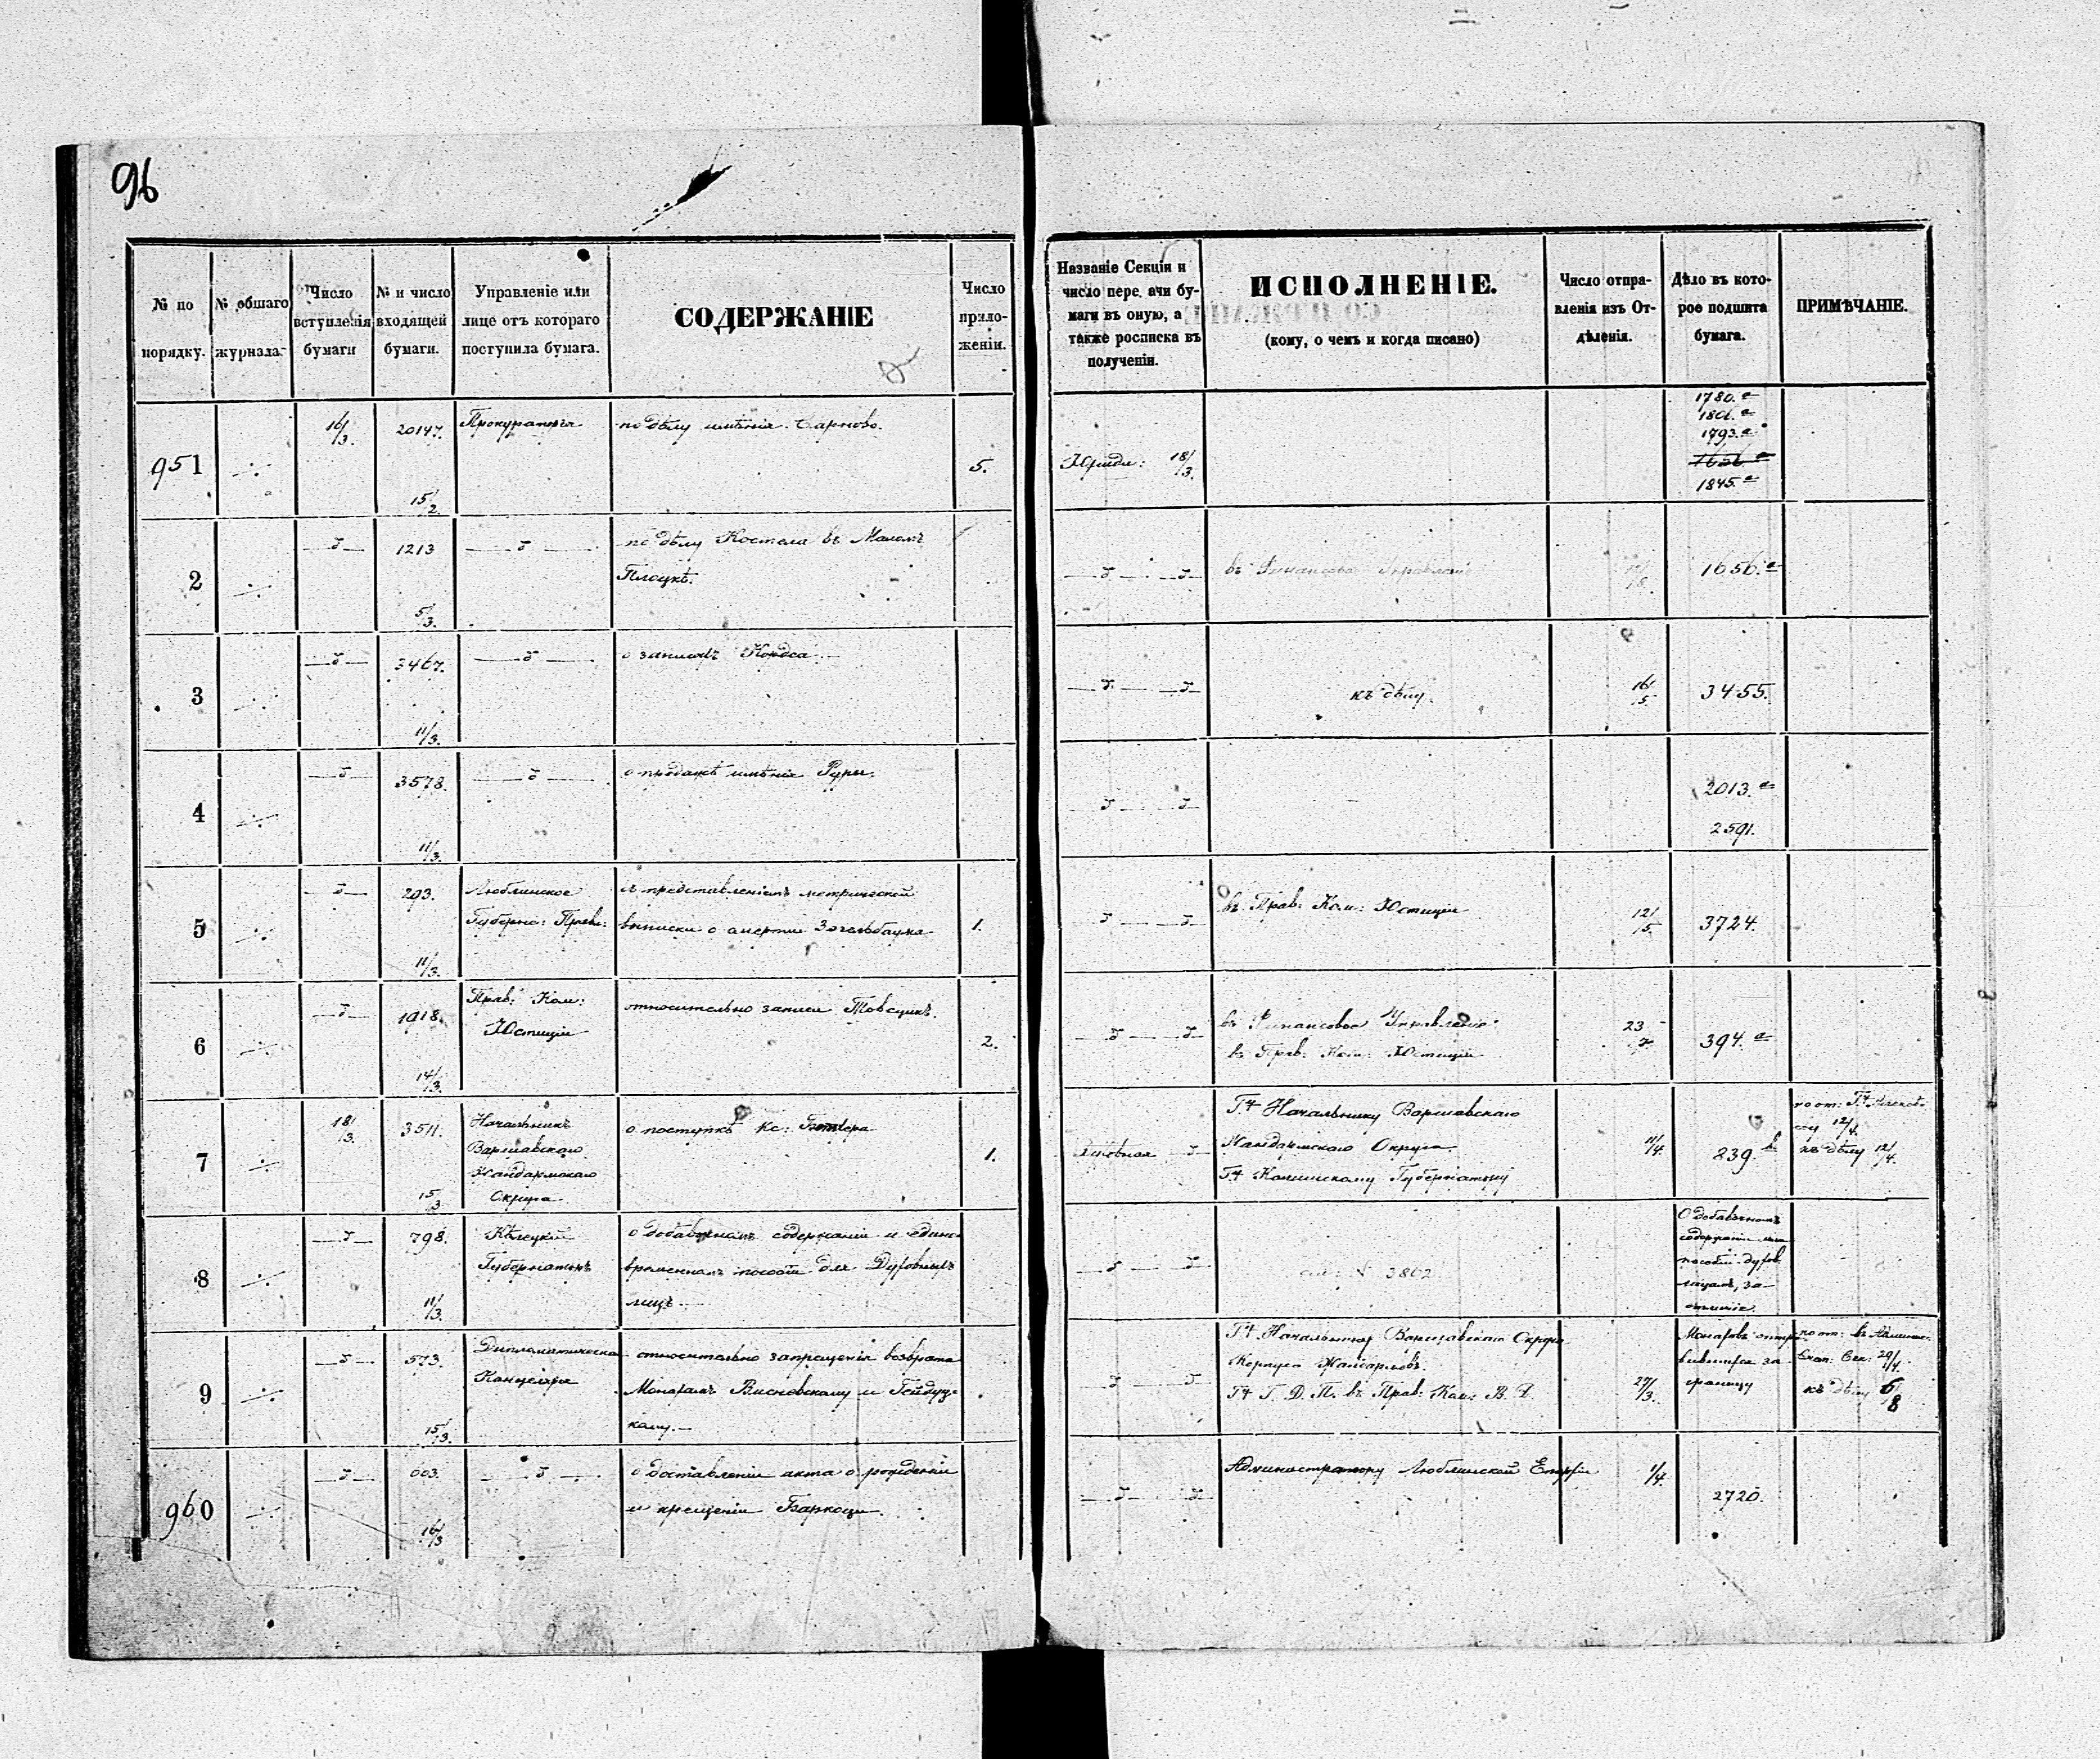 96
№ по порядку.
№ общаго журнала.
Число вступленія бумаги
№ и число входящей бумаги.
Управленіе или лице отъ котораго поступила бумага.
СОДЕРЖАНІЕ
Число приложеніи.
Названіе Секціи и число пере. ачи бумаги въ оную, а также росписка въ полученіи.
ИСПОЛНЕНІЕ.
(кому, о чемъ и когда писано)
Число отправленія изъ Отдѣленія.
Дѣло въ которое подшита бумага.
ПРИМѢЧАНІЕ.
951 16/3. 20147. 15/2. Прокураторія по дѣлу имѣнія Сарново. 5.
Юриди: 18/3.
1780. а
1801. а
1793. а
1656. а
1845. а
2 1213 5/3. по дѣлу Костела въ Маломъ
Плоцкѣ.
въ Финансовое Управленіе 1656. а
3 3467. 11/3. о записѣ
къ дѣлу. 16/5. 3455.
4 3578. 11/3. о продажѣ имѣнія Руры.
2013. а
2591.
5 293. 11/3. Люблинское
Губерн: Правл:
съ представленіемъ метрической
выписки о смерти 1.
въ Прав: Ком: Юстиціи 12/5. 3724.
6 1918. 14/3. Прав: Ком:
Юстиціи
относительно записи 2.
въ Финансовое Управленіе
въ Прав: Ком: Юстиціи
23/7 394. а
7 18/3. 3511. 15/3 Начальникъ
Варшавскаго
Жандармскаго
Округа
о поступкѣ Кс: 1.
Духовная
Гну Начальнику Варшавскаго
Жандармскаго Округа.
Гну Калишскому Губернатору
11/4. 239. в
12/4.
къ дѣлу 12/4.
8 798. 11/3. Кѣлецкій
Губернаторъ
о добавочномъ содержаніи и едино-
временномъ пособіи для Духовныхъ
лицъ.
№ 3862
О добавочномъ
содержаніи
пособіи духов.
лицамъ, за-
9 573. 15/3. Дипломатическая
Канцелярія
относительно запрещенія возврата
Монахамъ Висневскому и Гейдуц-
кому.
Гну Начальнику Варшавскаго Округа
Корпуса Жандармовъ.
Гну Г. Д. П. въ Прав: Ком: В. Д.
27/3.
Монаховъ отпра-
вившихся за
границу
29/4.
къ дѣлу 6/8
960 003. 16/3 о доставленіи акта о рожденіи
и крещеніи
Администратору Люблинской Епархіи 1/4. 2720.